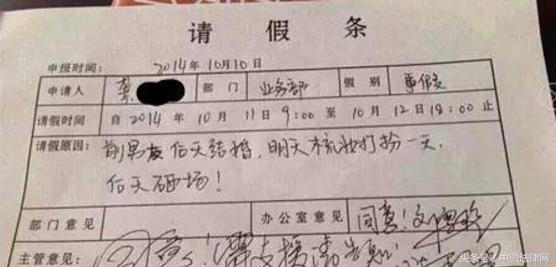 请 假 条
申报时间: 2014年10月10日
申请人 部 门 业务部 假 别 事假
请假时间 自 2014 年 10 月 11 日 9:00 至 10 月 12 日 18:00 止
请假原因: 前男友后天结婚,明天梳妆打扮一天,
后天砸场!
部门意见 办公室意见 同意!
主管意见: 同意!需支援请告知!
头条号/中顾法律网